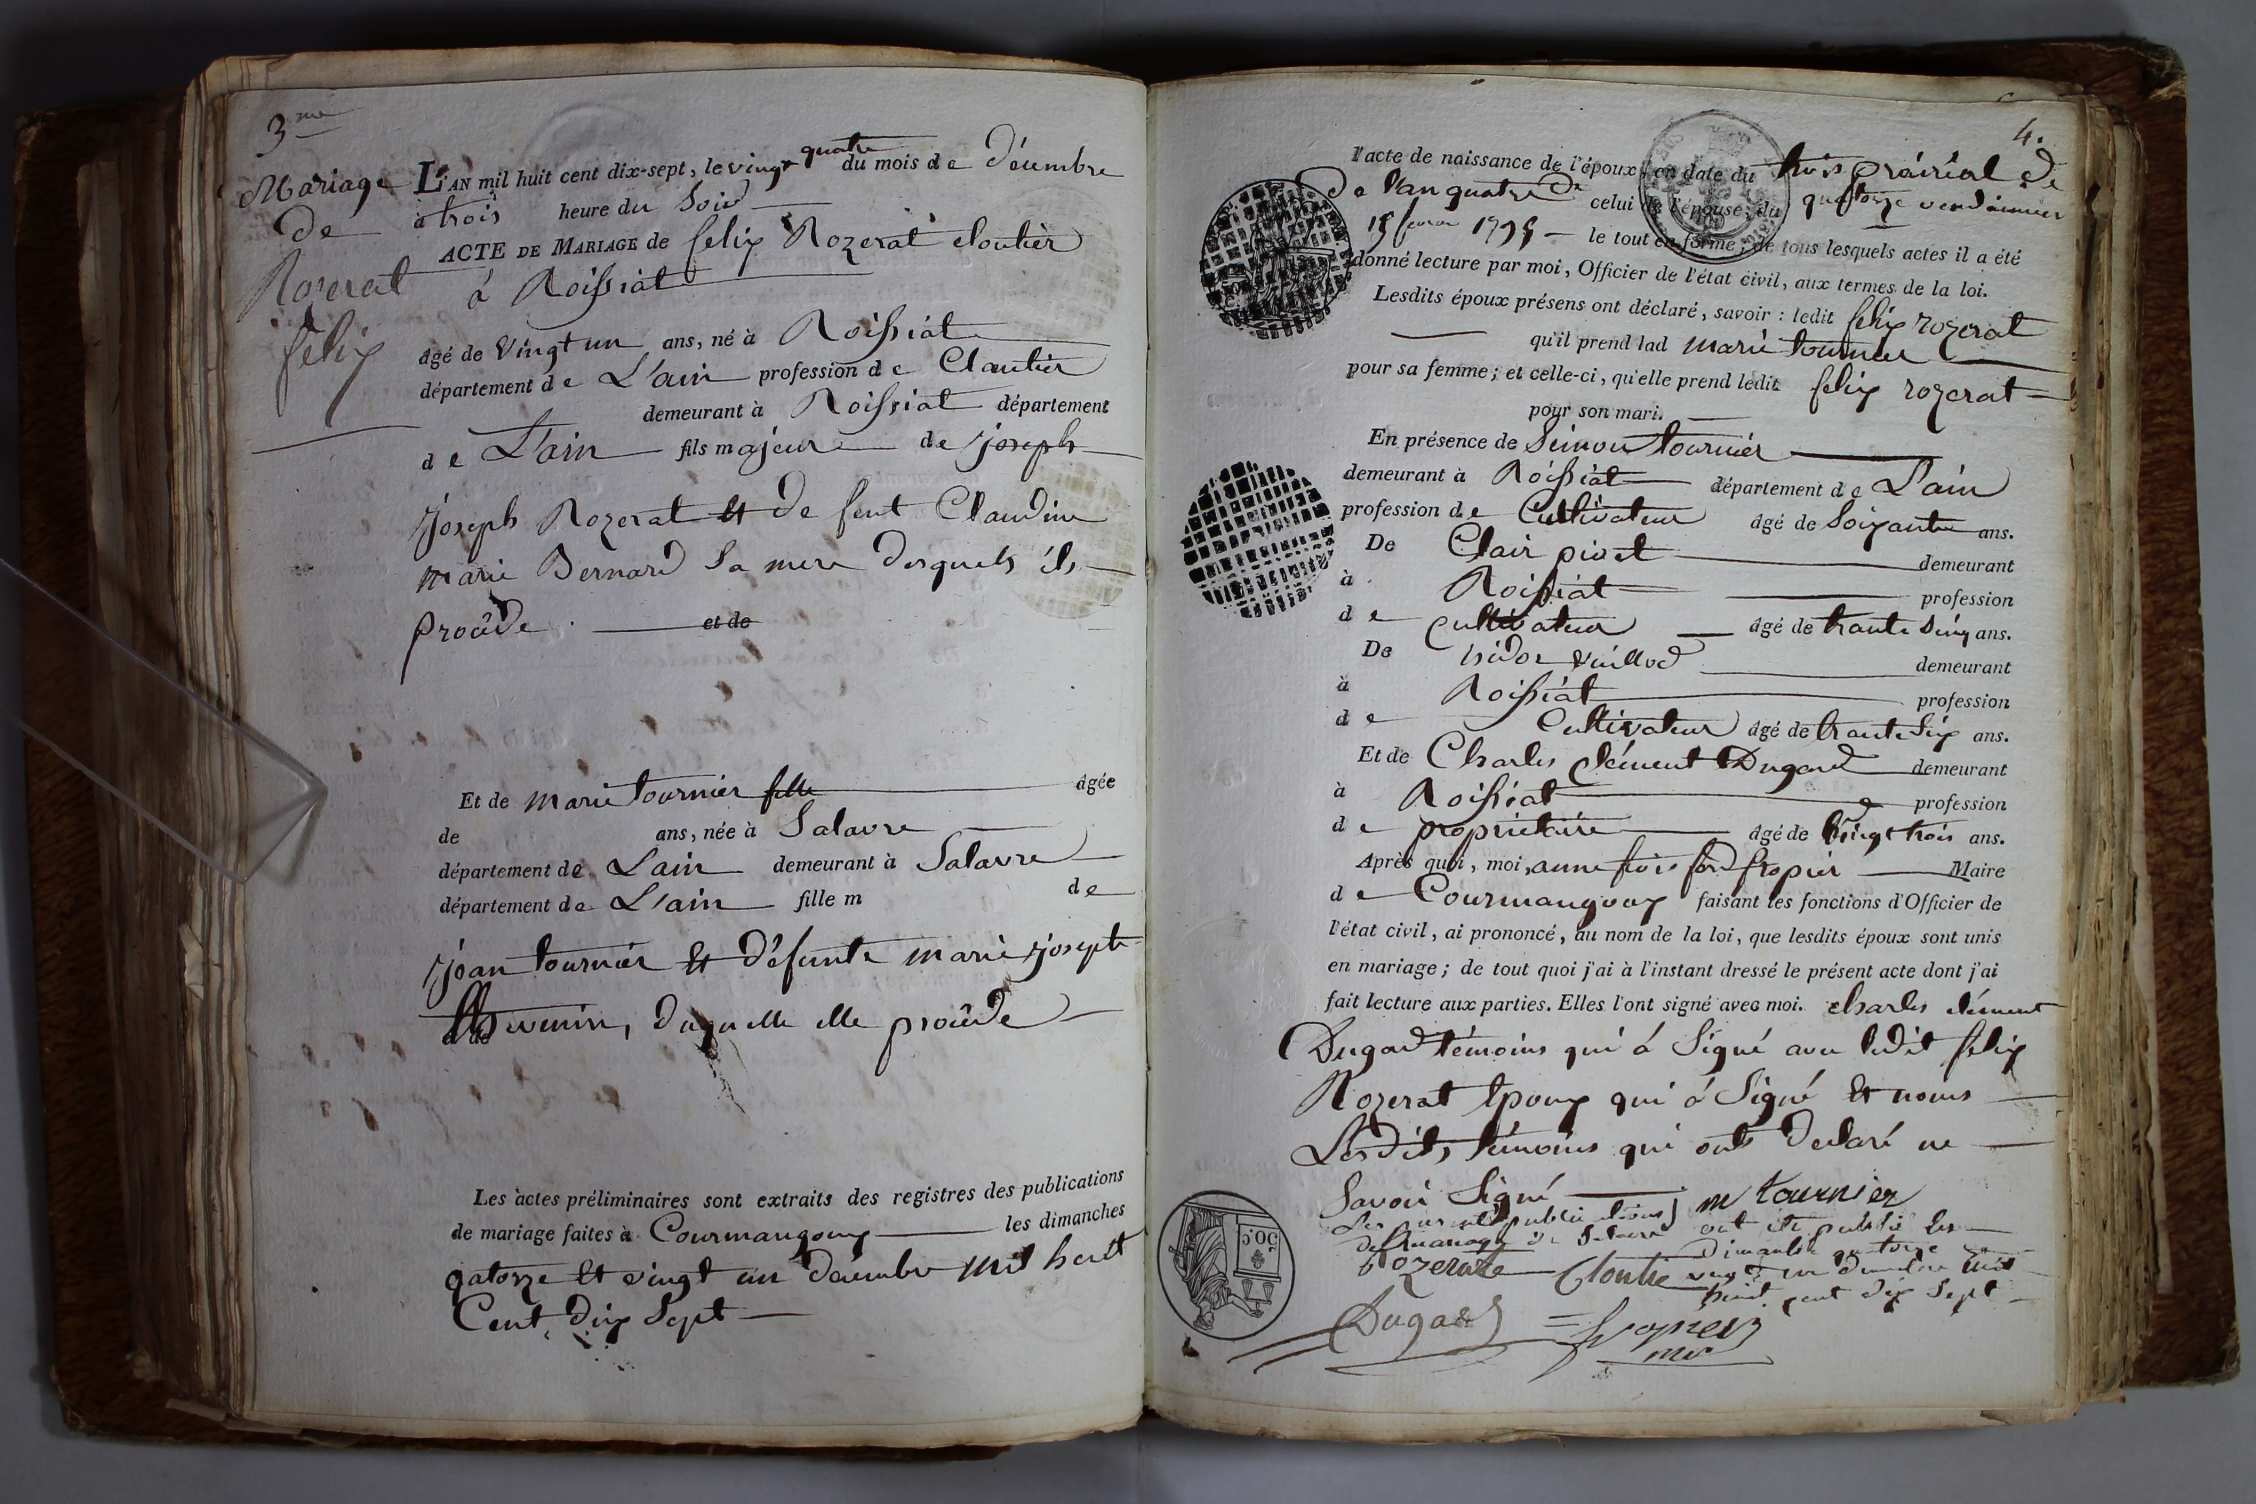 3me
Mariage
de
Rozerat
felix
L'AN mil huit cent dix-sept, le vingt quatre du mois de décembre
à trois heure du soir
ACTE DE MARIAGE de felix Rozerat cloutier
à Roissiat
âgé de vingt un ans, né à Roissiat
département de L'ain profession de Cloutier
demeurant à Roissiat département
de L'ain fils majeur de joseph
joseph Rozerat et de feut Claudine
marie Bernard sa mere desquels ils
procède et de
Et de marie tournier fille âgée
de ans, née à Salavre
département de Lain demeurant à Salavre
département de L'ain fille m de
jean tournier et défunte marie joseph
thevenin, duquelle elle procède
Les actes préliminaires sont extraits des registres des publications
de mariage faites à Courmangoux les dimanches
qatorze et vingt un décembre mil huit
Cent dix sept
4.
l'acte de naissance de l'époux, en date du trois prairial de
de l'an quatre celui de l'épouse, du quatorze vendémiaire
1795 le tout en forme; de tous lesquels actes il a été
donné lecture par moi, Officier de l'état civil, aux termes de la loi.
Lesdits époux présens ont déclaré, savoir : ledit felix rozerat
qu'il prend lad marie tournier
pour sa femme; et celle-ci, qu'elle prend ledit felix rozerat
pour son mari.
En présence de Simon tournier
demeurant à Roissiat département de L'ain
profession de Cultivateur âgé de soixante ans.
De Clair pivet demeurant
à Roissiat profession
de cultivateur âgé de trante sinq ans.
De isidor vuillod demeurant
à Roissiat profession
de Cultivateur âgé de trante six ans.
Et de Charles clément Dugad demeurant
à Roissiat profession
de proprietaire âgé de vingt trois ans.
Après quoi, moi, anne fropier Maire
de Courmangoux faisant les fonctions d'Officier de
l'état civil, ai prononcé, au nom de la loi, que lesdits époux sont unis
en mariage; de tout quoi j'ai à l'instant dressé le présent acte dont j'ai
fait lecture aux parties. Elles l'ont signé avec moi. charles clément
Dugad témoins qui à signé avec ledit felix
Rozerat epoux qui à signé et nous
Lesdits témoins qui ont declaré ne
savoir signé m tournier
Les publications ont été publié les
de mariage à Salavre dimanche quatorze
rozerat Cloutie vingt un décembre mil
huit cent dix sept
Dugad fropier
mre
50.c